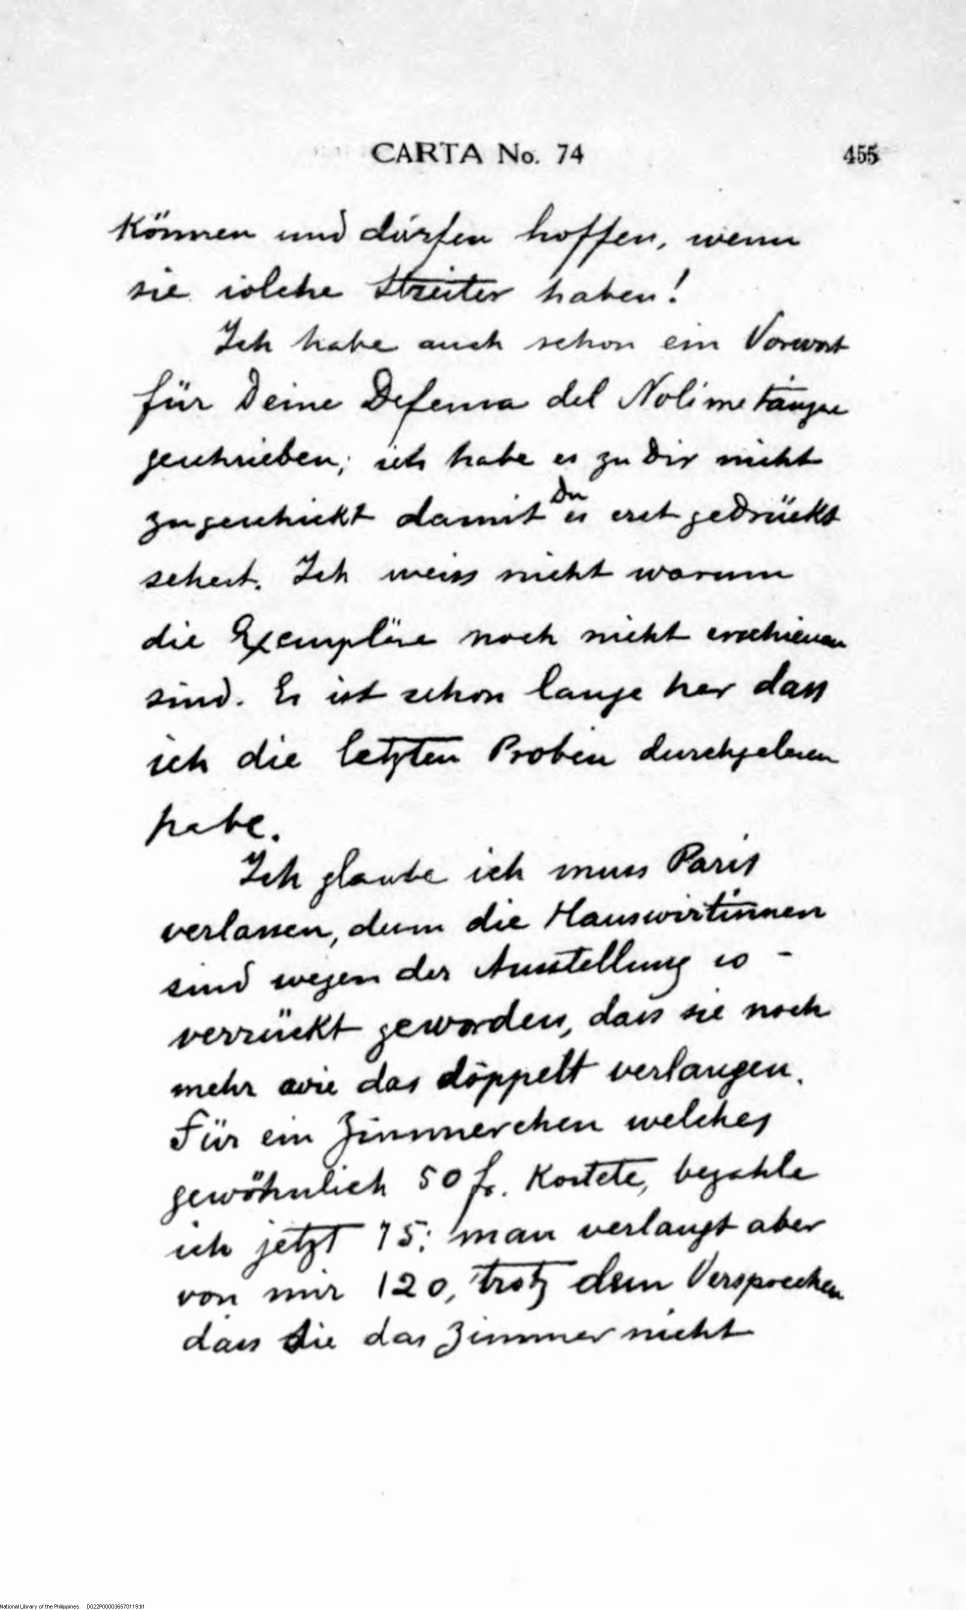 CARTA No. 74 455
können und dürfen hoffen, wenn
sie solche Streiter haben!
Ich habe auch schon ein Vorwort
für Deine Defensa del Noli me tángere
geschrieben; ich habe es zu Dir nicht
zugeschickt damit Du es erst gedrückt
sehest. Ich weiss nicht warum
die Exempläre noch nicht erschienen
sind. Es ist schon lange her dass
ich die letzten Proben durchgelesen
habe.
Ich glaube ich muss Paris
verlassen, denn die Hauswirtinnen
sind wegen der Ausstellung so -
verrückt geworden, dass sie noch
mehr wie das döppelt verlangen.
Für ein Zimmerchen welches
gewöhnlich 50 fr. kostete, bezahle
ich jetzt 75; man verlangt aber
von mir 120, trotz dem Versprechen
dass Sie das Zimmer nicht
National Library of the Philippines